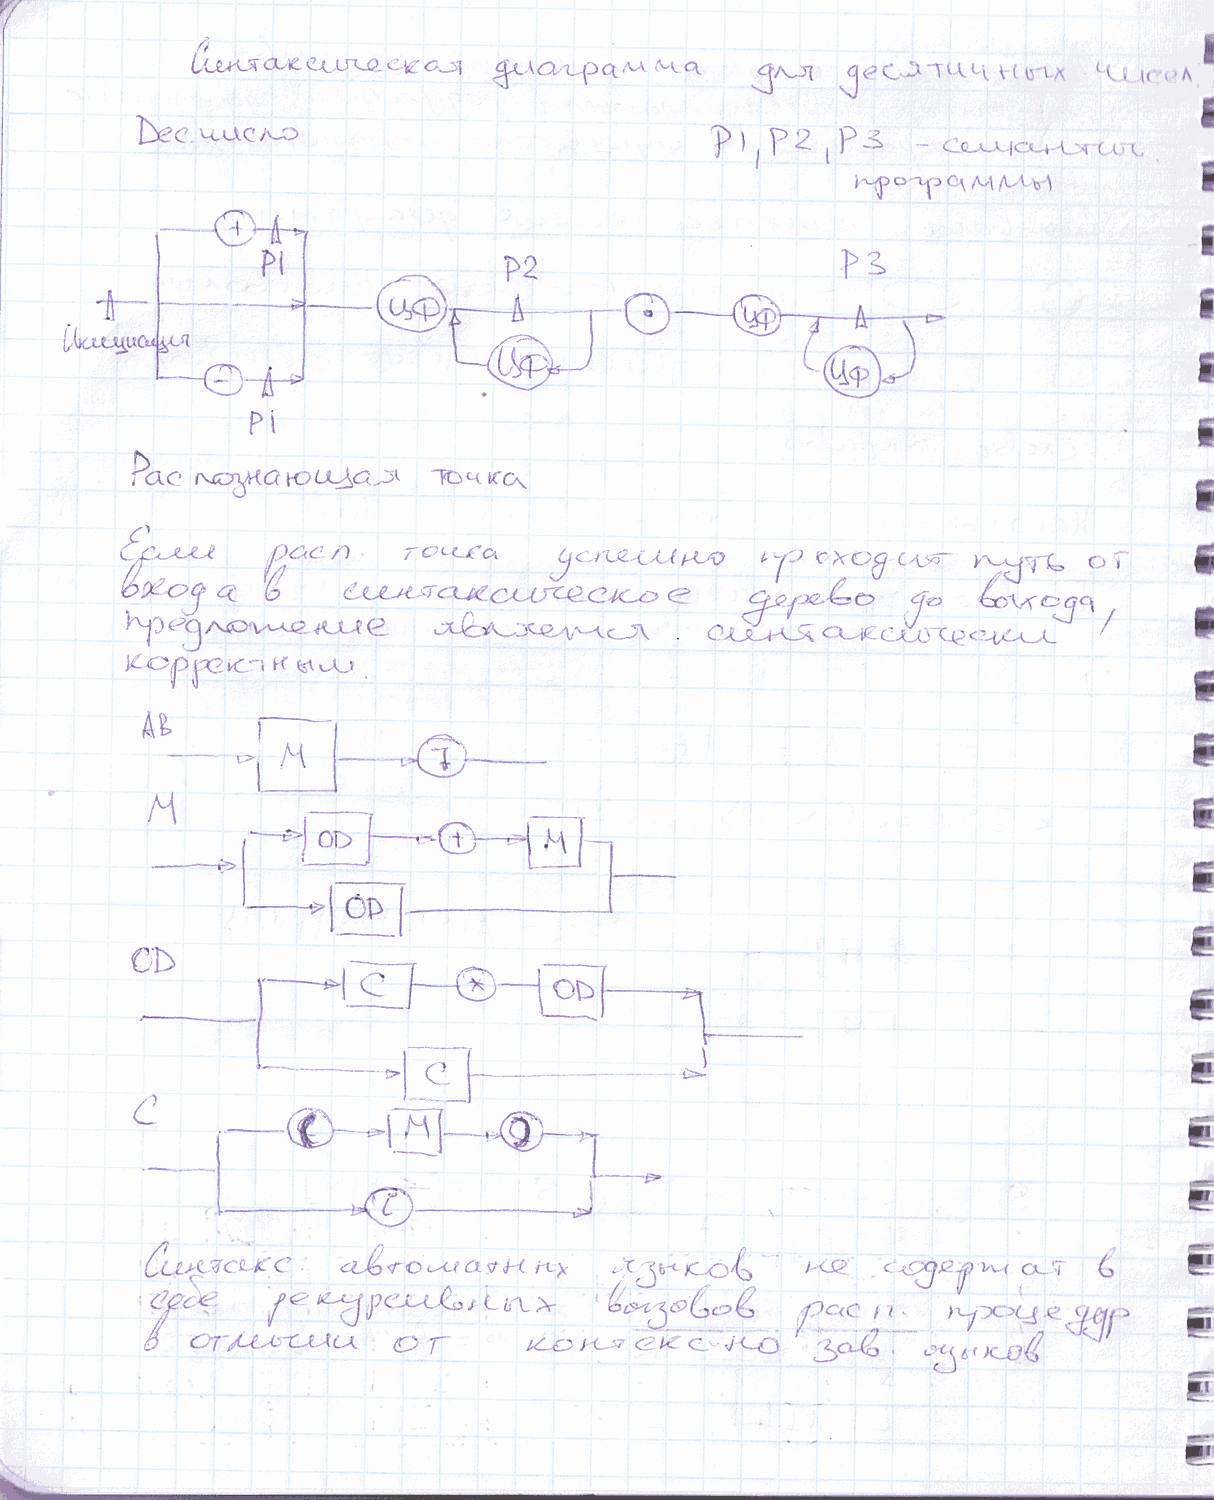 Синтаксическая диаграмма для десятичных чисел.
Дес. число
P1, P2, P3 - семантич.
программы
+
P1
P2
P3
ЦФ
.
ЦФ
Инициация
ЦФ
ЦФ
-
P1
Распознающая точка
Если расп. точка успешно проходит путь от
входа в синтаксическое дерево до выхода,
предложение является синтаксически
корректным.
АВ
М
М
OD
+
М
OD
OD
С
*
OD
С
С
(
М
)
i
Синтакс. автоматных языков не содержат в
себе рекурсивных вызовов расп. процедур
в отличии от контекстно зав. языков